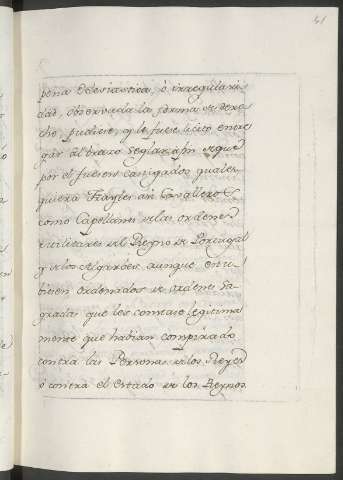 41
pena Eclesiastica, ó irregulari-
dad, observada la forma de dere-
cho, pudiese, y le fuese licito entre-
gar al brazo Seglar a fin de que
por el fuesen castigados quales-
quiera Frayles asi Cavalleros
como Capellanes de las ordenes
militares del Reyno de Portugal
y de los Algarves, aunque estu-
biesen ordenados de ordenes Sa-
gradas que les constase legitima
mente que habian conspirado
contra las Personas de los Reyes
ó contra el estado de los Reynos